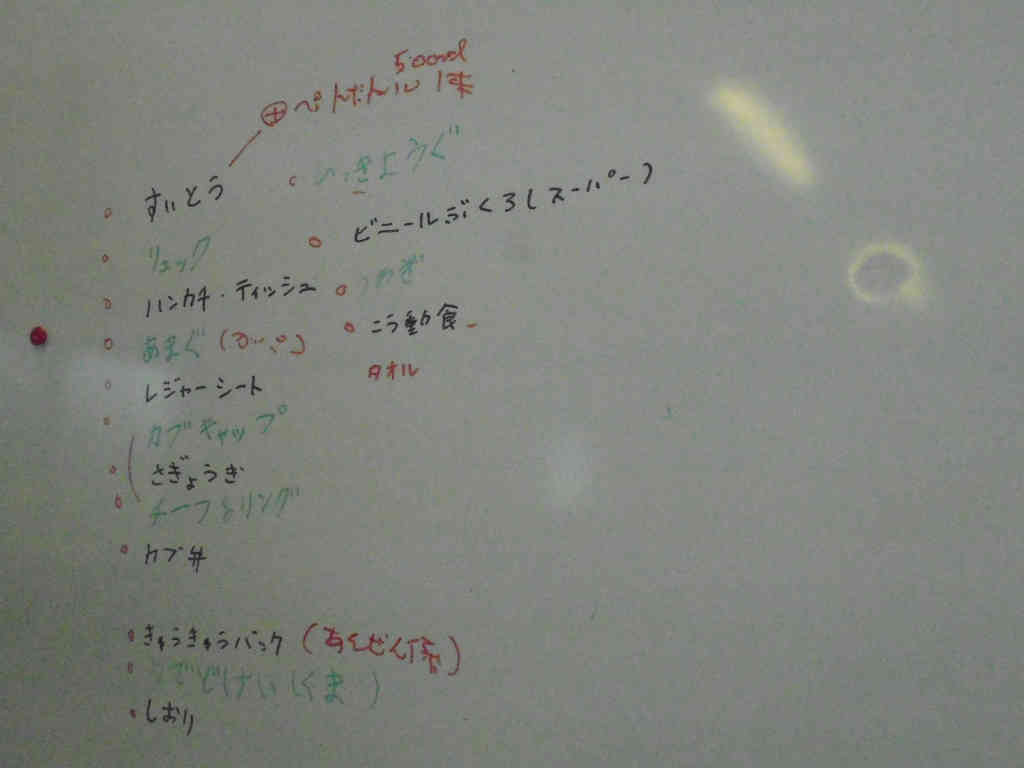 500ml
⊕ペトボトル 1本
すいとう
リュック
ハンカチ・ティッシュ
あまぐ(カッパ)
レジャーシート
カブキャップ
さぎょうぎ
チーフ&リング
カブ弁
ひっきようぐ
ビニールぶくろ(スーパー)
うわぎ
こう動食
タオル
きゅうきゅうパック(あんぜん係)
うでどけい(くま)
しおり